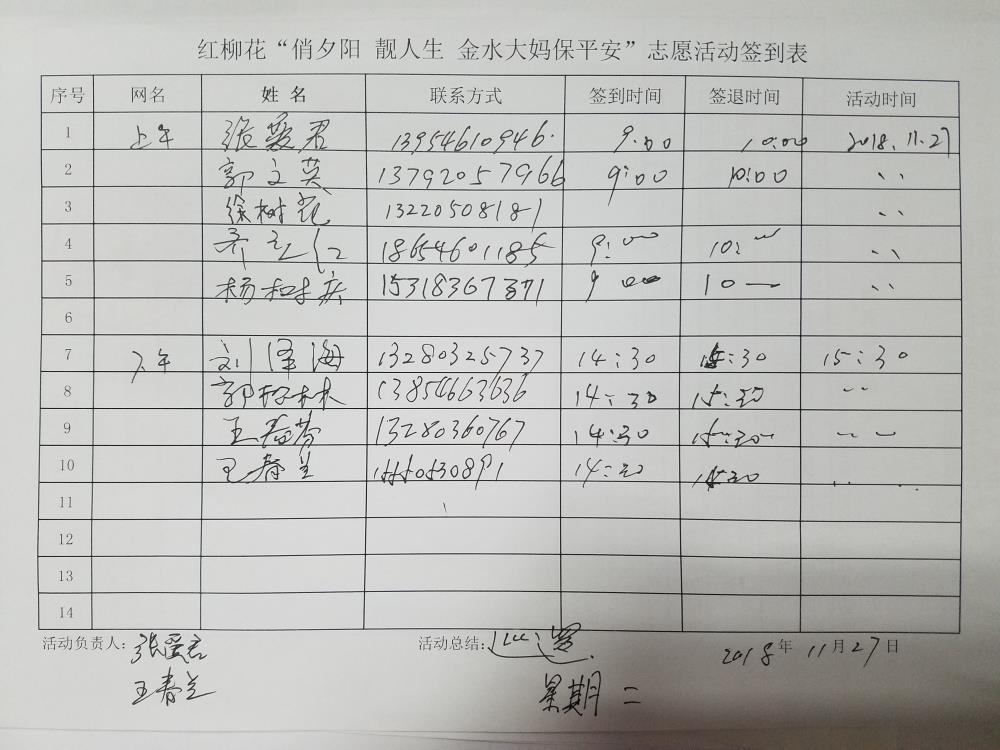 红柳花“俏夕阳 靓人生 金水大妈保平安”志愿活动签到表
序号 网名 姓 名 联系方式 签到时间 签退时间 活动时间
1 上午 张爱君 13954610946. 9:00 10:00 2018.11.27
2 郭文英 13792057966 9:00 10:00 〃
3 徐树花 13220508181 〃
4 18654601185 9:00 10:00 〃
5 杨树庆 9 00 10 〃
6
7 下午 刘泽海 13280325737 14:30 15:30 15:30
8 郭树林 13854663636 14:30 15:30 〃
9 王春芳 13280360767 14:30 15:30 〃
10 王春兰 14:30 15:30 〃
11
12
13
14
活动负责人: 张爱君 活动总结: 2018年11月27日
王春兰 星期二